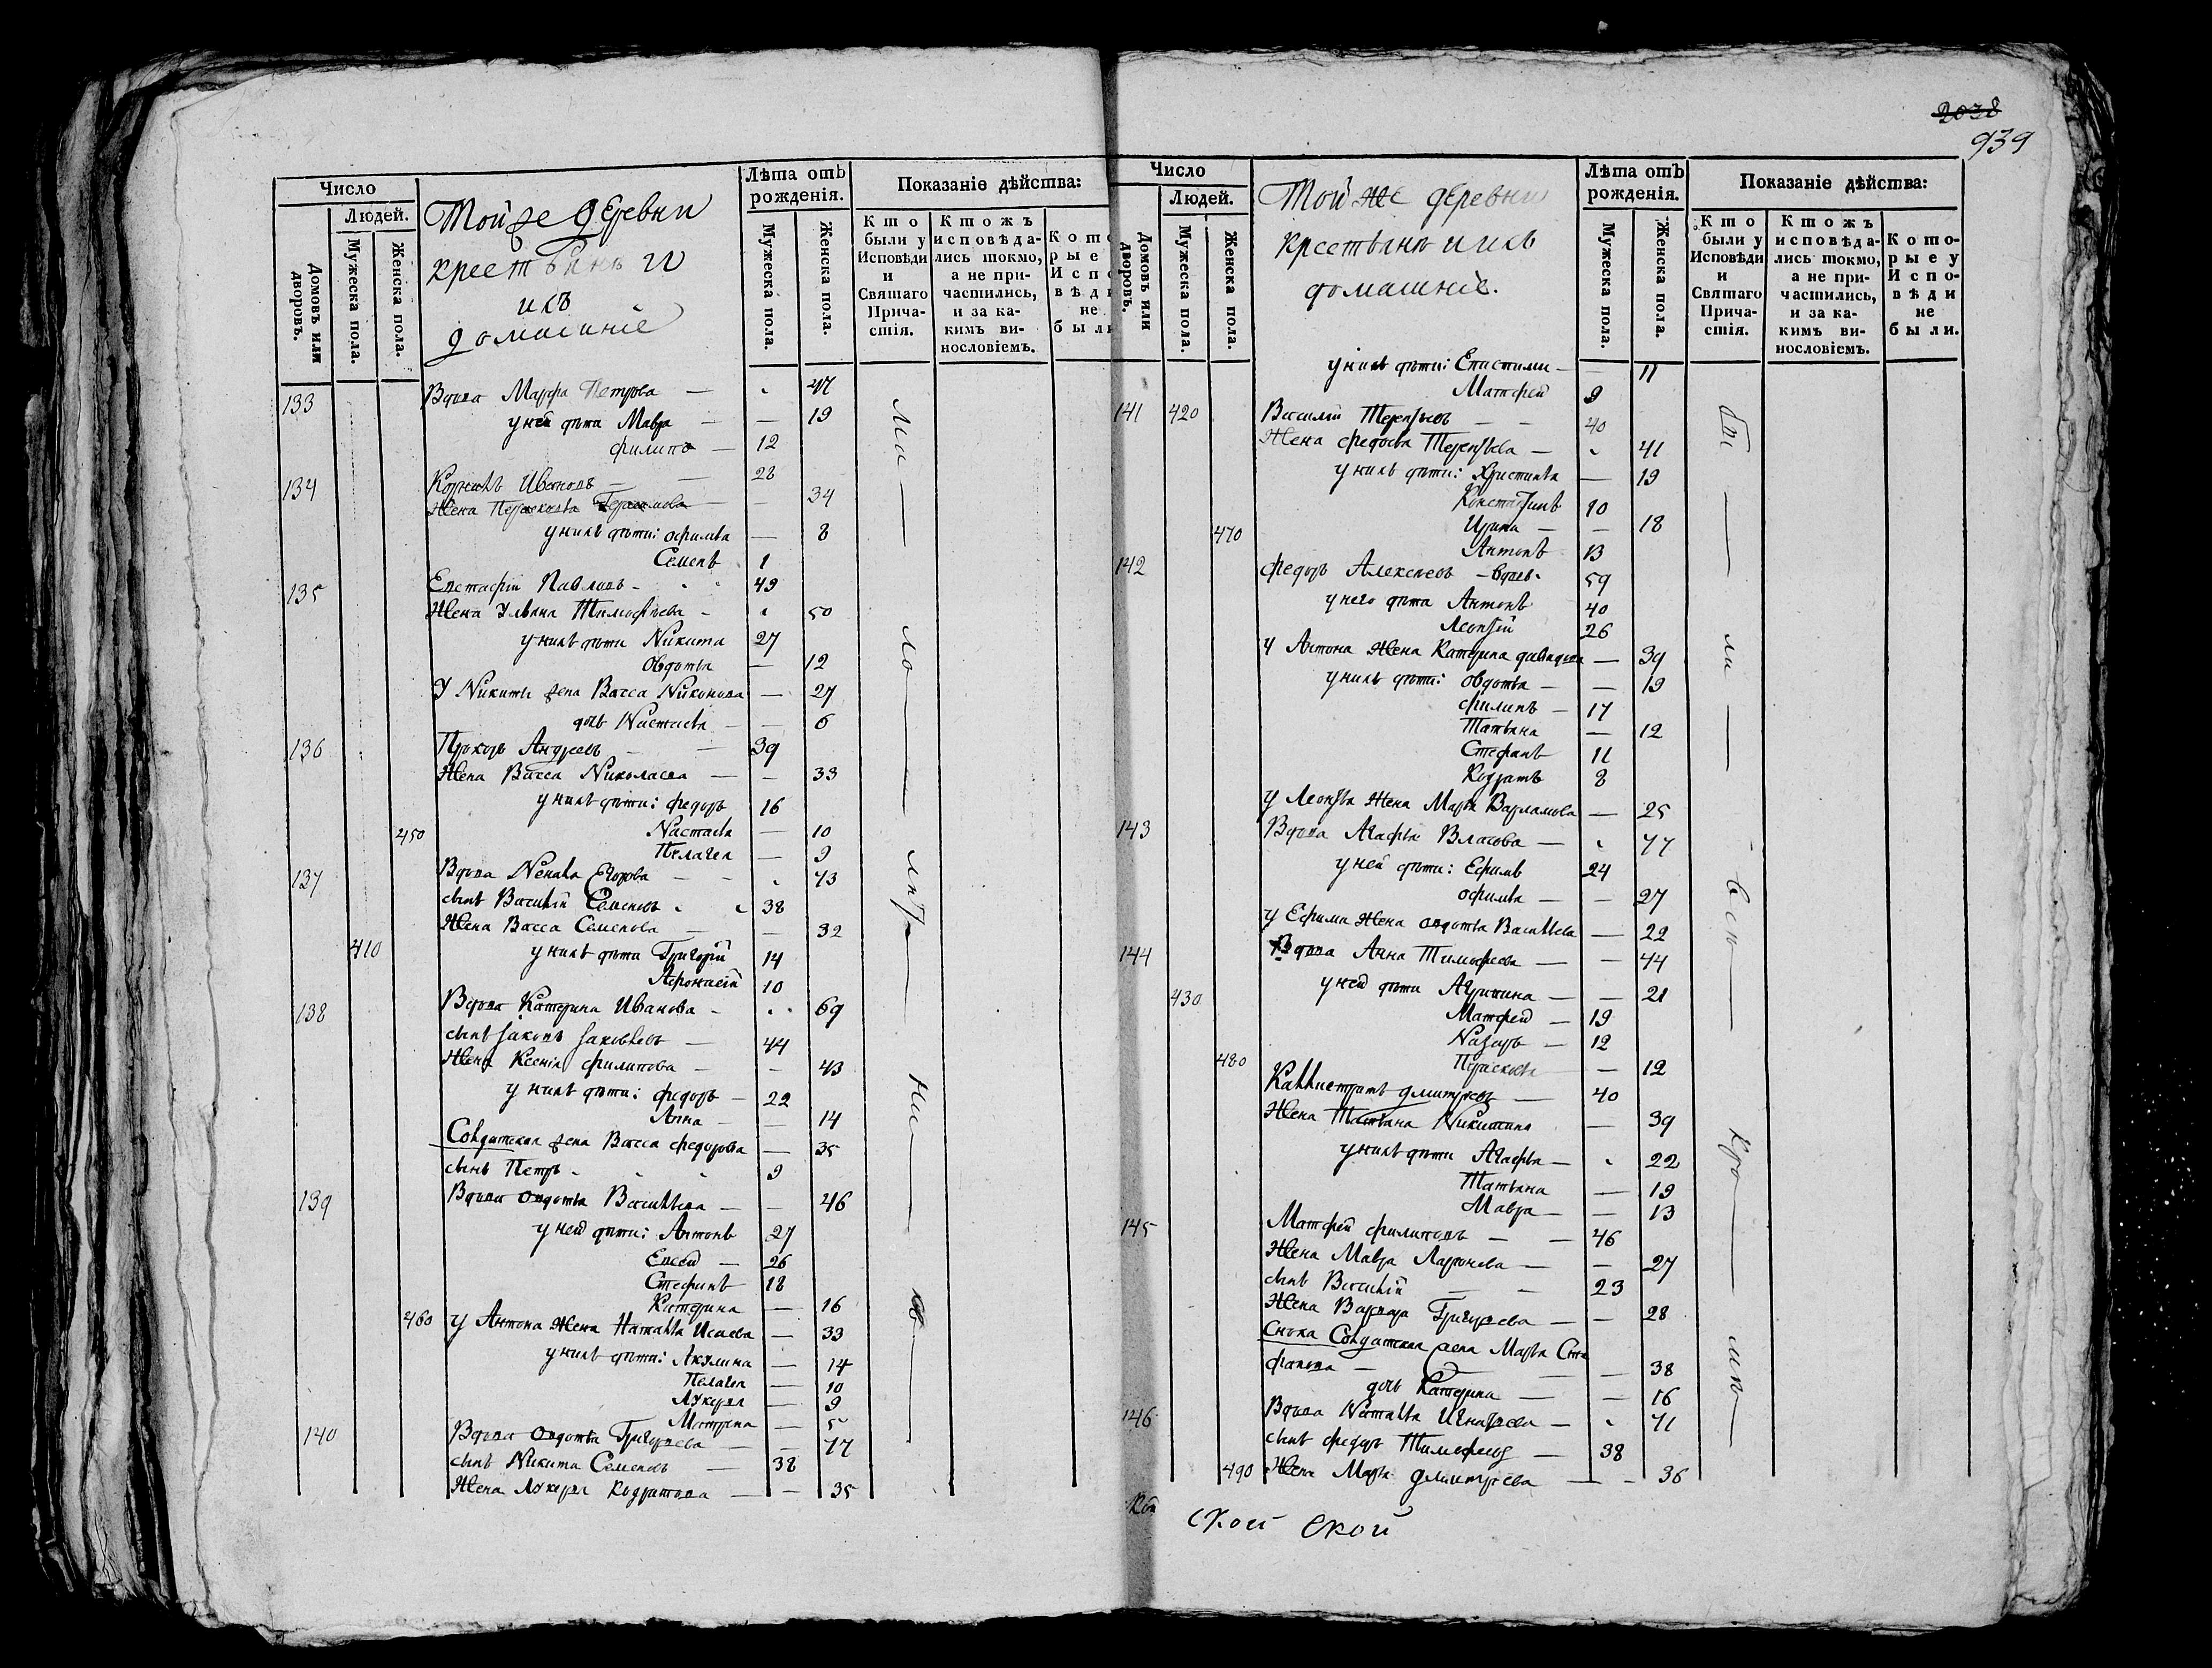 2038
939
Число
Людей.
Домовъ или дворовъ.
Мужеска пола.
Женска пола.
Той же деревни
крестьянъ и
ихъ
домашніе
Лѣта отъ рожденія.
Мужеска пола.
Женска пола.
Показаніе дѣйства:
Кто были у Исповѣди и Святаго Причастія.
Ктожъ исповѣдались токмо, а не причастились, и за какимъ винословіемъ.
133 Вдова Марфа Петрова — 47
у ней дѣти Мавра — 19
Филипъ — 12
134 Иванов — 28
Жена — 34
у нихъ дѣти: Офимья — 8
Семенъ 1
135 Евстафій Павловъ 49
Жена Ульяна Тимофѣева 50
у нихъ дѣти Никита 27
Овдотья — 12
У Никиты жена Васса Никонова — 27
дочь Настасья — 6
136 Прохоръ Андреевъ — 39
Жена Васса Николаева — 33
у нихъ дѣти: Федоръ 16
450 Настасья — 10
Пелагея — 9
137 Вдова Ненила Егорова — 73
сынъ Василій Семеновъ 38
Жена Васса Семенова — 32
410 у нихъ дѣти Григорій 14
Афонасій 10
138 Вдова Катерина Иванова — 69
сынъ Яковъ Яковлевъ — 44
Жена Ксенія Филипова — 43
у нихъ дѣти: Федоръ — 22
Анна — 14
Солдатская жена Васса Федорова — 35
сынъ Петръ 9
139 Вдова Овдотья Васильева — 46
у ней дѣти: Антонъ 27
Евсей — 26
Стефанъ 18
Катерина — 16
460 У Антона Жена Наталья Исаева — 33
у нихъ дѣти: Акулина — 14
Пелагея — 10
Лукерья — 9
Матрена — 5
140 Вдова Овдотья Григорьева — 77
сынъ Никита Семеновъ — 38
Жена Лукерья Кодратова — 35
Число
Людей.
Домовъ или дворовъ.
Мужеска пола.
Женска пола.
Той же деревни
крестьянъ и ихъ
домашніе.
Лѣта отъ рожденія.
Мужеска пола.
Женска пола.
Показаніе дѣйства:
Кто были у Исповѣди и Святаго Причастія.
Ктожъ исповѣдались токмо, а не причастились, и за какимъ винословіемъ.
Которые у Исповѣди не были.
у нихъ дѣти: Епистимия — 11
Матфей 9
141 420 Василій Терентьевъ — 40
Жена Федосья Терентьева — 41
у нихъ дѣти: Христинья — 19
Константинъ 10
470 Ирина — 18
Антонъ 13
142 Федоръ Алексѣевъ — вдовъ 59
у него дѣти Антонъ 40
Леонтій 26
У Антона Жена Катерина Давыдова — 39
у нихъ дѣти: Овдотья — 19
Филипъ — 17
Татьяна — 12
Стефанъ 11
Кодратъ 8
У Леонтья Жена Марья Варламова — 25
143 Вдова Агафья Власова — 77
у ней дѣти: Ефимъ 24
Офимья — 27
У Ефима Жена Овдотья Васильева — 22
144 Вдова Анна Тимофеева — 44
430 у ней дѣти — 21
Матфей — 19
Назаръ — 12
480 Парасковья — 12
Каллистратъ Дмитревъ — 40
Жена Татьяна Никитина — 39
у нихъ дѣти Агафья — 22
Татьяна — 19
Мавра — 13
145 Матфей Филиповъ — 46
Жена Мавра Ларионова — 27
сынъ Василій — 23
Жена Варвара Григорьева — 28
Сноха Солдатская жена Марья Сте
фанова — 38
дочь Катерина — 16
146 Вдова Наталья Игнатьева — 71
сынъ Федоръ Тимофеевъ — 38
490 Жена Марья Дмитріева — 36
ской ской